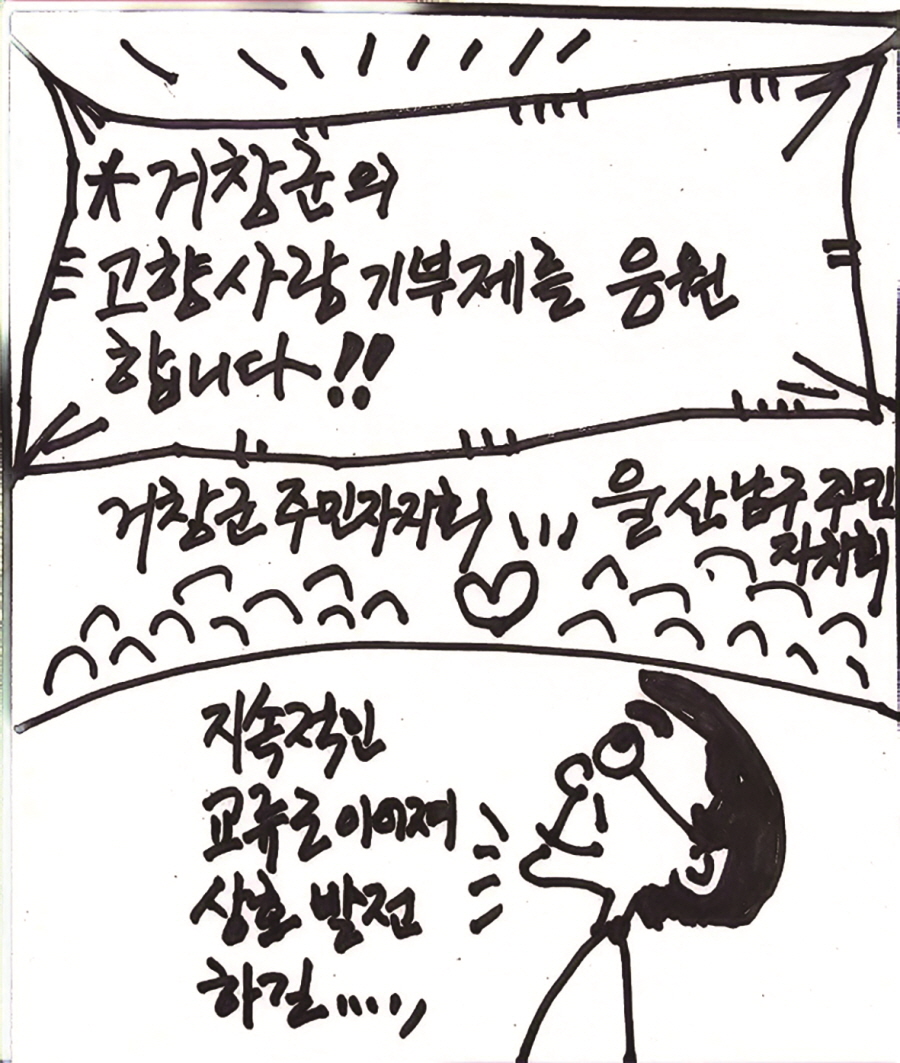 *거창군의
고향사랑기부제를 응원
합니다!!
거창군주민자치회,,, 울산남구주민
자치회
지속적인
교류로이어져
상호발전
하길.....,